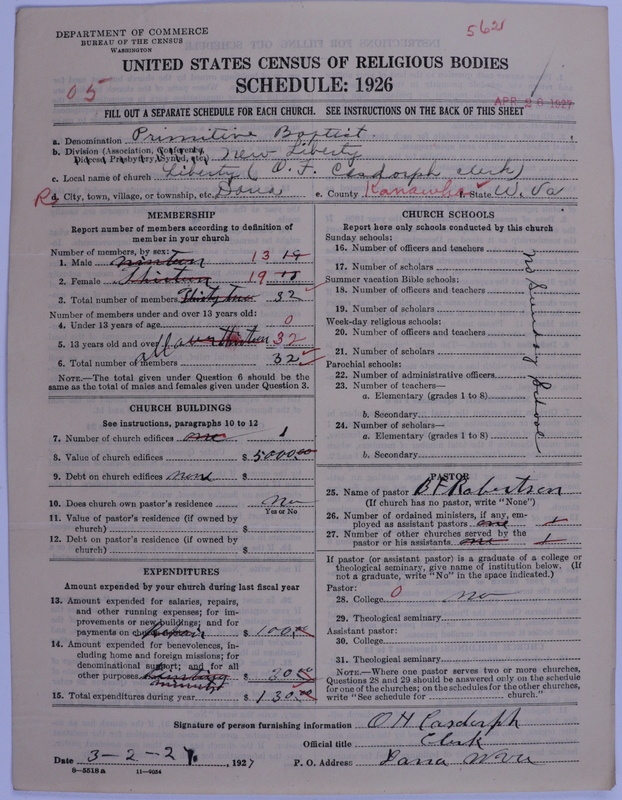 DEPARTMENT OF COMMERCE
BUREAU OF THE CENSUS
WASHINGTON
562
UNITED STATES CENSUS OF RELIGIOUS BODIES
SCHEDULE: 1926
05
APR 26 1927
FILL OUT A SEPARATE SCHEDULE FOR EACH CHURCH. SEE INSTRUCTIONS ON THE BACK OF THIS SHEET
a. Denomination Primitive Baptist
b. Division (Association, Conference, Diocese, Presbytery, Synod, etc.) New Liberty
c. Local name of church Liberty (O. F. Casdorph clerk)
R d. City, town, village, or township, etc. Dana e. County Kanawha f. State W. Va
MEMBERSHIP
Report number of members according to definition of
member in your church
Number of members, by sex:
1. Male 13
2. Female 19
3. Total number of members Thirty two 32
Number of members under and over 13 years old:
4. Under 13 years of age 0
5. 13 years old and over all over thirteen 32
6. Total number of members 32
NOTE.—The total given under Question 6 should be the
same as the total of males and females given under Question 3.
CHURCH BUILDINGS
See instructions, paragraphs 10 to 12
7. Number of church edifices one 1
8. Value of church edifices $ 500000
9. Debt on church edifices none $
10. Does church own pastor's residence No
Yes or No
11. Value of pastor's residence (if owned by
church) $
12. Debt on pastor's residence (if owned by
church) $
EXPENDITURES
Amount expended by your church during last fiscal year
13. Amount expended for salaries, repairs,
and other running expenses; for im-
provements or new buildings; and for
payments on church debt Repair $ 100.00
14. Amount expended for benevolences, in-
cluding home and foreign missions; for
denominational support; and for all
other purposes $ 30.00
15. Total expenditures during year $ 130.00
CHURCH SCHOOLS
Report here only schools conducted by this church
Sunday schools:
16. Number of officers and teachers
17. Number of scholars
Summer vacation Bible schools:
18. Number of officers and teachers
19. Number of scholars
Week-day religious schools:
20. Number of officers and teachers
21. Number of scholars
Parochial schools:
22. Number of administrative officers
23. Number of teachers—
a. Elementary (grades 1 to 8)
b. Secondary
24. Number of scholars—
a. Elementary (grades 1 to 8)
b. Secondary
No Sunday School
PASTOR
25. Name of pastor B F Robertson
(If church has no pastor, write "None")
26. Number of ordained ministers, if any, em-
ployed as assistant pastors one 1
27. Number of other churches served by the
pastor or his assistants one 1
If pastor (or assistant pastor) is a graduate of a college or
theological seminary, give name of institution below. (If
not a graduate, write "No" in the space indicated.)
Pastor:
28. College 0 no
29. Theological seminary
Assistant pastor:
30. College
31. Theological seminary
NOTE.—Where one pastor serves two or more churches,
Questions 28 and 29 should be answered only on the schedule
for one of the churches; on the schedules for the other churches,
write "See schedule for church."
Signature of person furnishing information O H Casdorph
Official title Clerk
Date 3-2-27, 1927 P. O. Address Dana W Va
8—5518a 11—9054